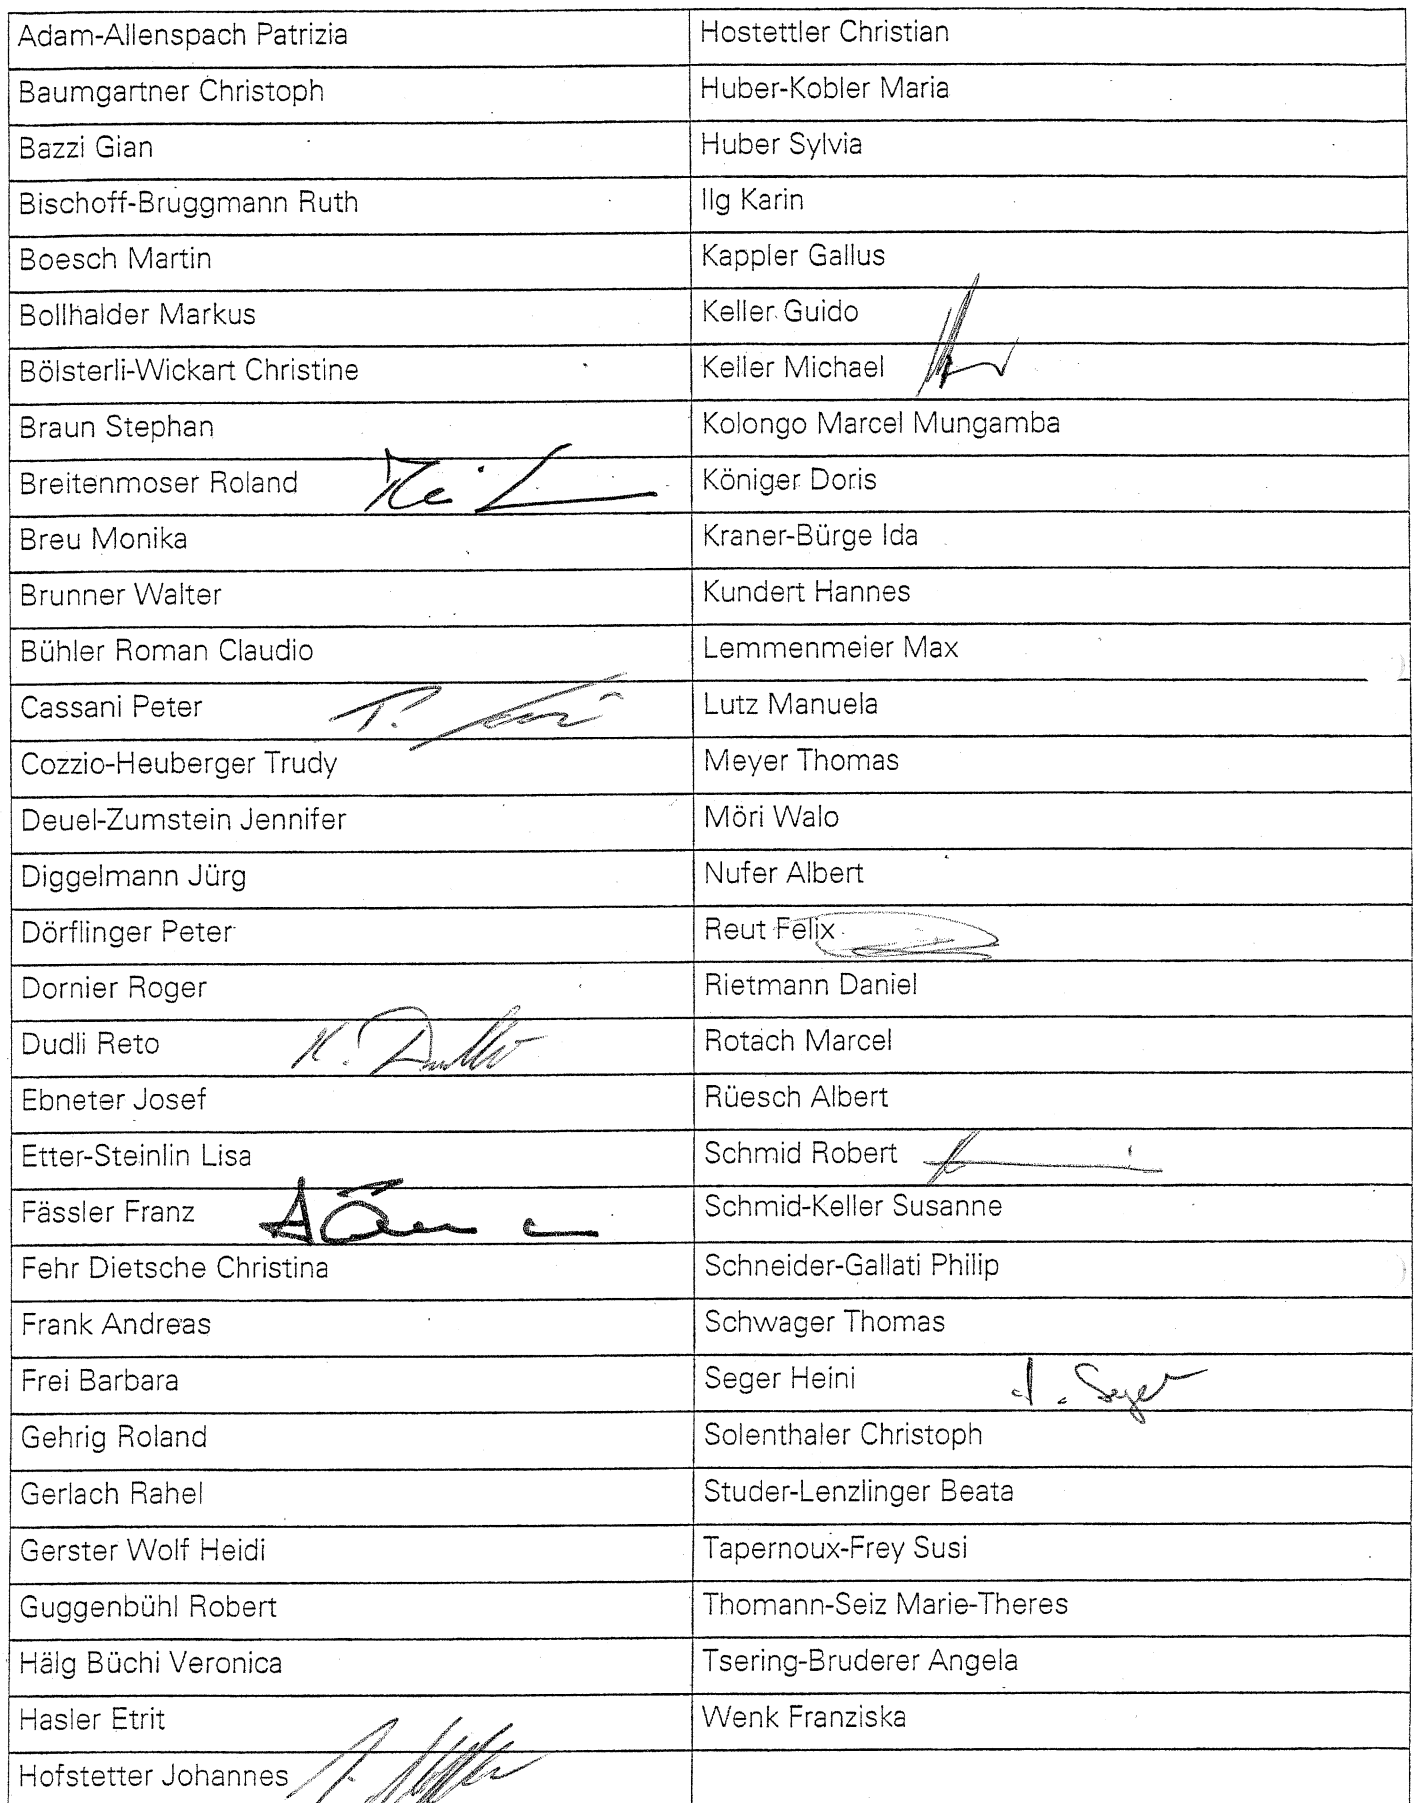 Adam-Allenspach Patrizia
Baumgartner Christoph
Bazzi Gian
Bischoff-Bruggmann Ruth
Boesch Martin
Bollhalder Markus
Bölsterli-Wickart Christine
Braun Stephan
Breitenmoser Roland
Breu Monika
Brunner Walter
Bühler Roman Claudio
Cassani Peter
Cozzio-Heuberger Trudy
Deuel-Zumstein Jennifer
Diggelmann Jürg
Dörflinger Peter
Dornier Roger
Dudli Reto
Ebneter Josef
Etter-Steinlin Lisa
Fässler Franz
Fehr Dietsche Christina
Frank Andreas
Frei Barbara
Gehrig Roland
Gerlach Rahel
Gerster Wolf Heidi
Guggenbühl Robert
Hälg Büchi Veronica
Hasler Etrit
Hofstetter Johannes
Hostettler Christian
Huber-Kobler Maria
Huber Sylvia
Ilg Karin
Kappler Gallus
Keller Guido
Keller Michael
Kolongo Marcel Mungamba
Königer Doris
Kraner-Bürge Ida
Kundert Hannes
Lemmenmeier Max
Lutz Manuela
Meyer Thomas
Möri Walo
Nufer Albert
Reut Felix
Rietmann Daniel
Rotach Marcel
Rüesch Albert
Schmid Robert
Schmid-Keller Susanne
Schneider-Gallati Philip
Schwager Thomas
Seger Heini
Solenthaler Christoph
Studer-Lenzlinger Beata
Tapernoux-Frey Susi
Thomann-Seiz Marie-Theres
Tsering-Bruderer Angela
Wenk Franziska